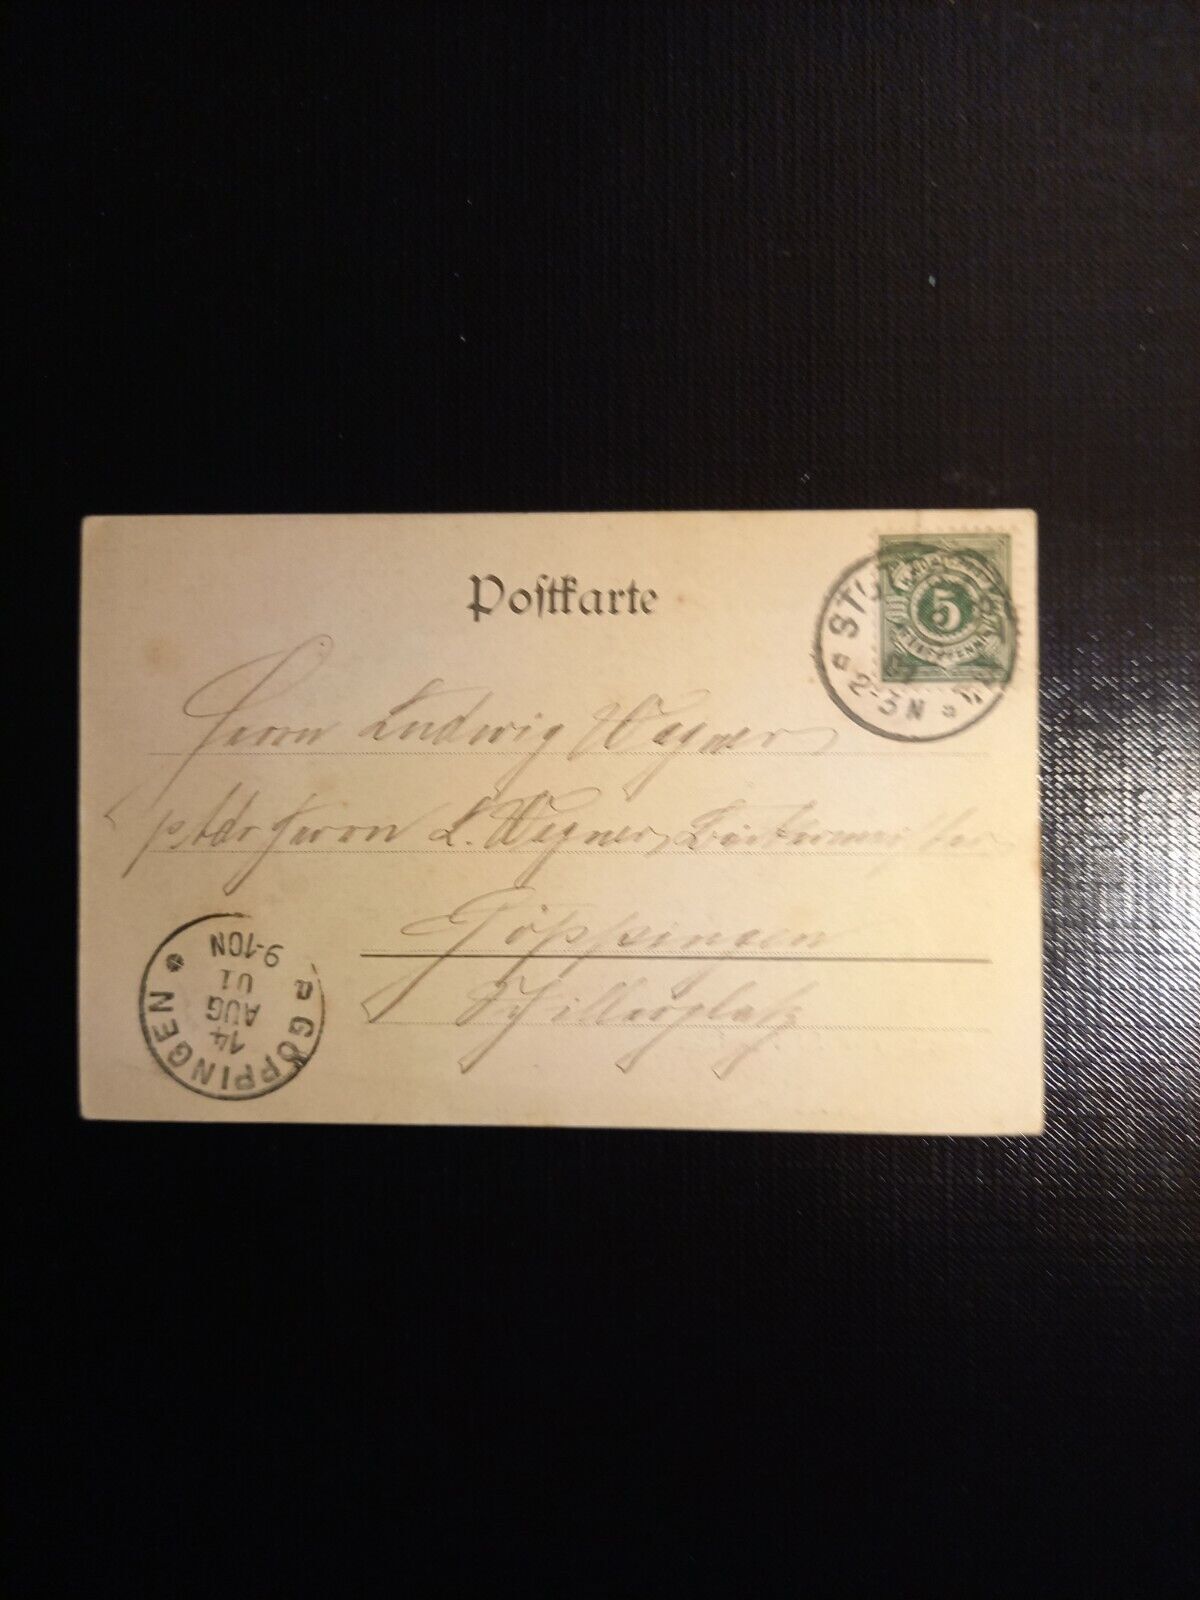 Postkarte
ST
5
2-3N
Herrn Ludwig Wegner
Herrn L. Wegner,
Göppingen
Schillerplatz
GÖPPINGEN
14
AUG
01
9-10N